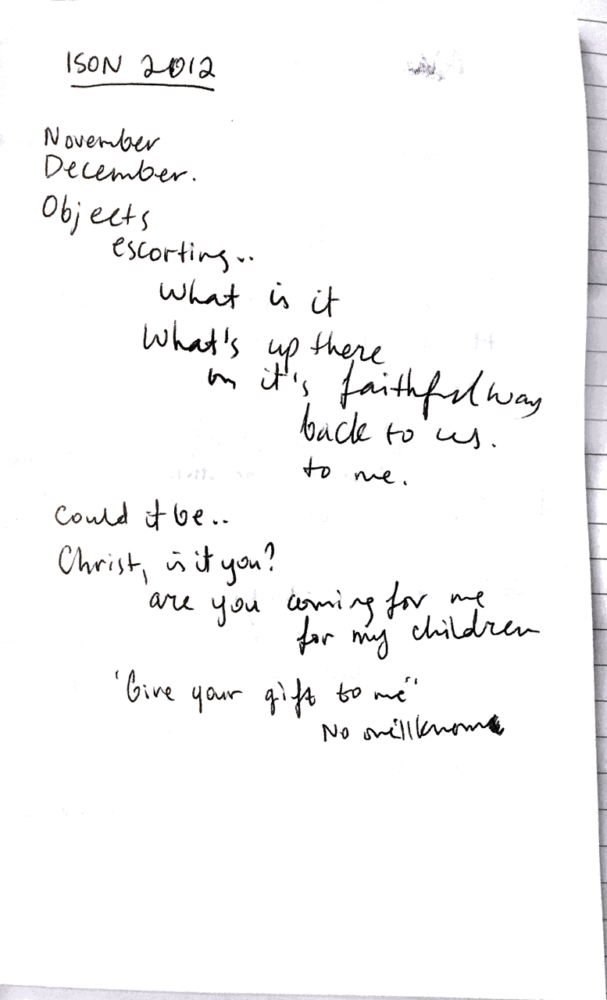 ISON 2012
November
December.
Objects
escorting..
What is it
What's up there
on it's faithful way
back to us.
to me.
Could it be..
Christ, is it you?
are you coming for me
for my children
'Give your gift to me"
No